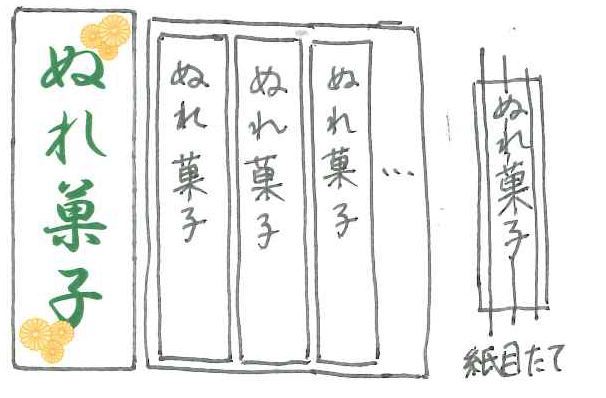 ぬれ菓子
ぬれ菓子
ぬれ菓子
ぬれ菓子
…
ぬれ菓子
紙目たて